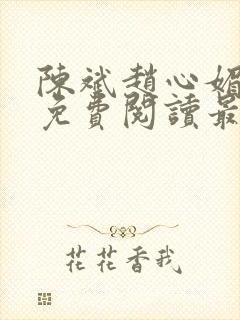 陳斌趙心媚
免費閱讀最
花花香我